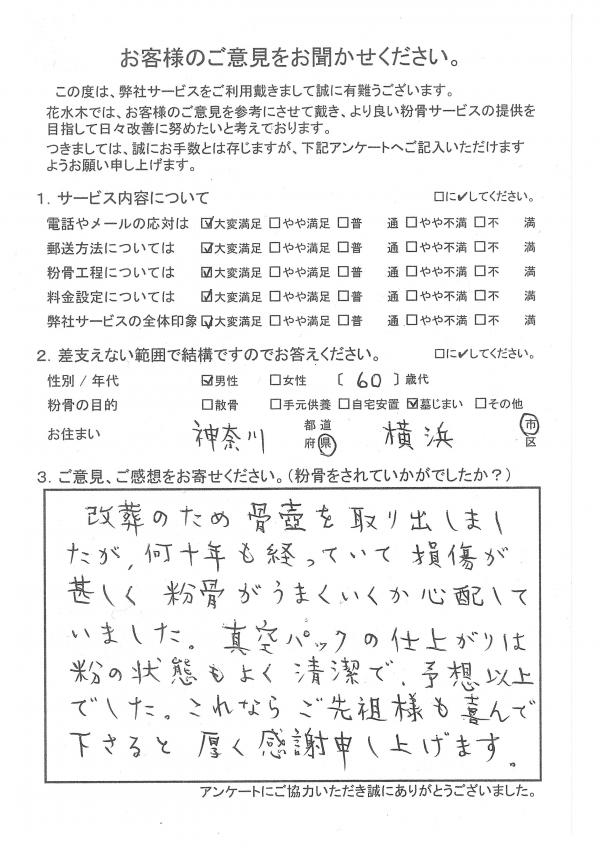 お客様のご意見をお聞かせください。
この度は、弊社サービスをご利用戴きまして誠に有難うございます。
花水木では、お客様のご意見を参考にさせて戴き、より良い粉骨サービスの提供を
目指して日々改善に努めたいと考えております。
つきましては、誠にお手数とは存じますが、下記アンケートへご記入いただけます
ようお願い申し上げます。
1. サービス内容について □に✔してください。
電話やメールの応対は ☑大変満足 □やや満足 □普 通 □やや不満 □不 満
郵送方法については ☑大変満足 □やや満足 □普 通 □やや不満 □不 満
粉骨工程については ☑大変満足 □やや満足 □普 通 □やや不満 □不 満
料金設定については ☑大変満足 □やや満足 □普 通 □やや不満 □不 満
弊社サービスの全体印象 ☑大変満足 □やや満足 □普 通 □やや不満 □不 満
2. 差支えない範囲で結構ですのでお答えください。 □に✔してください。
性別 / 年代 ☑男性 □女性 〔 60 〕歳代
粉骨の目的 □散骨 □手元供養 □自宅安置 ☑墓じまい □その他
お住まい 神奈川 都道府県 横浜 市区
3. ご意見、ご感想をお寄せください。(粉骨をされていかがでしたか?)
改葬のため骨壺を取り出しまし
たが、何十年も経っていて損傷が
甚しく粉骨がうまくいくか心配して
いました。真空パックの仕上がりは
粉の状態もよく清潔で、予想以上
でした。これならご先祖様も喜んで
下さると厚く感謝申し上げます。
アンケートにご協力いただき誠にありがとうございました。